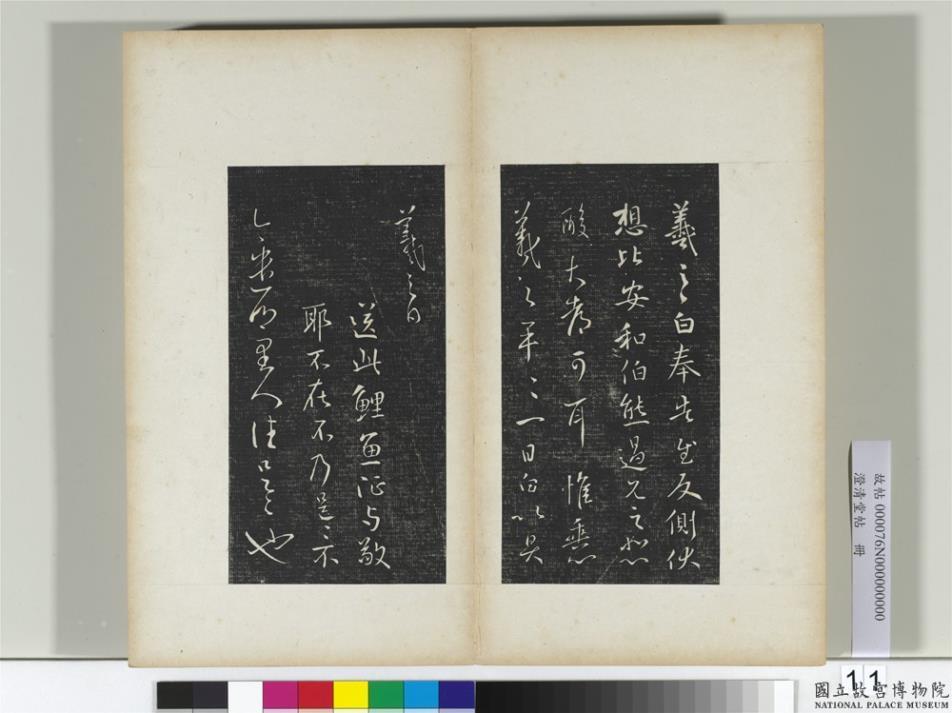 羲之白奉告慰反側伏
想比安和伯熊過見之悲
酸大都可耳惟垂
羲之
一日白以吳
羲之白
送此鯉魚征与敬
耶不在不乃是示
里人佳也
故帖 000076N000000000
澄清堂帖 冊
11
國立故宮博物院
NATIONAL PALACE MUSEUM